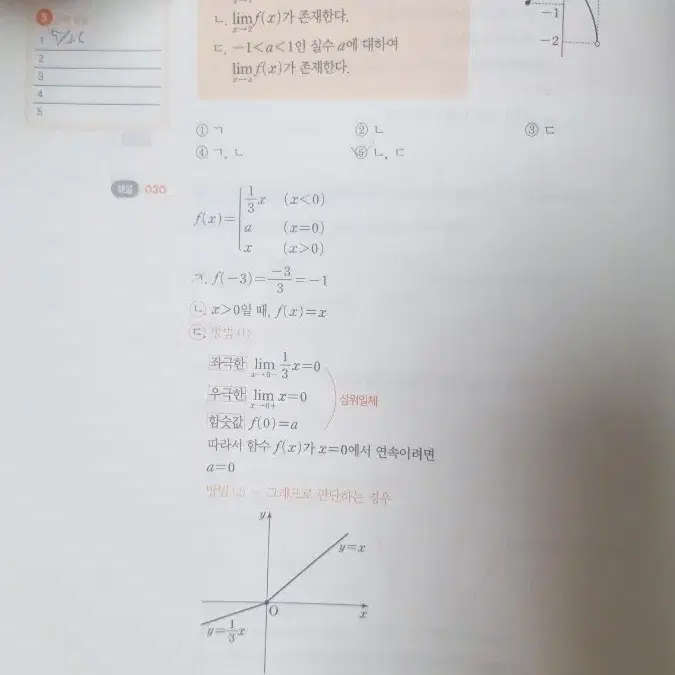 ㄴ. lim f(x)가 존재한다.
x→2
ㄷ. -1<a<1인 실수 a에 대하여
lim f(x)가 존재한다.
x→a
-1
-2
1
2
3
4
5
① ㄱ ② ㄴ ③ ㄷ
④ ㄱ, ㄴ ⑤ ㄴ, ㄷ
해설 030
f(x)= 1/3 x (x<0)
a (x=0)
x (x>0)
ㄱ. f(-3)= -3/3 = -1
ㄴ. x>0일 때, f(x)=x
ㄷ. 방법 (1)
좌극한 lim x→0- 1/3 x=0
우극한 lim x→0+ x=0
삼위일체
함숫값 f(0)=a
따라서 함수 f(x)가 x=0에서 연속이려면
a=0
방법 (2) - 그래프로 판단하는 경우
y
y=x
O
x
y=1/3 x